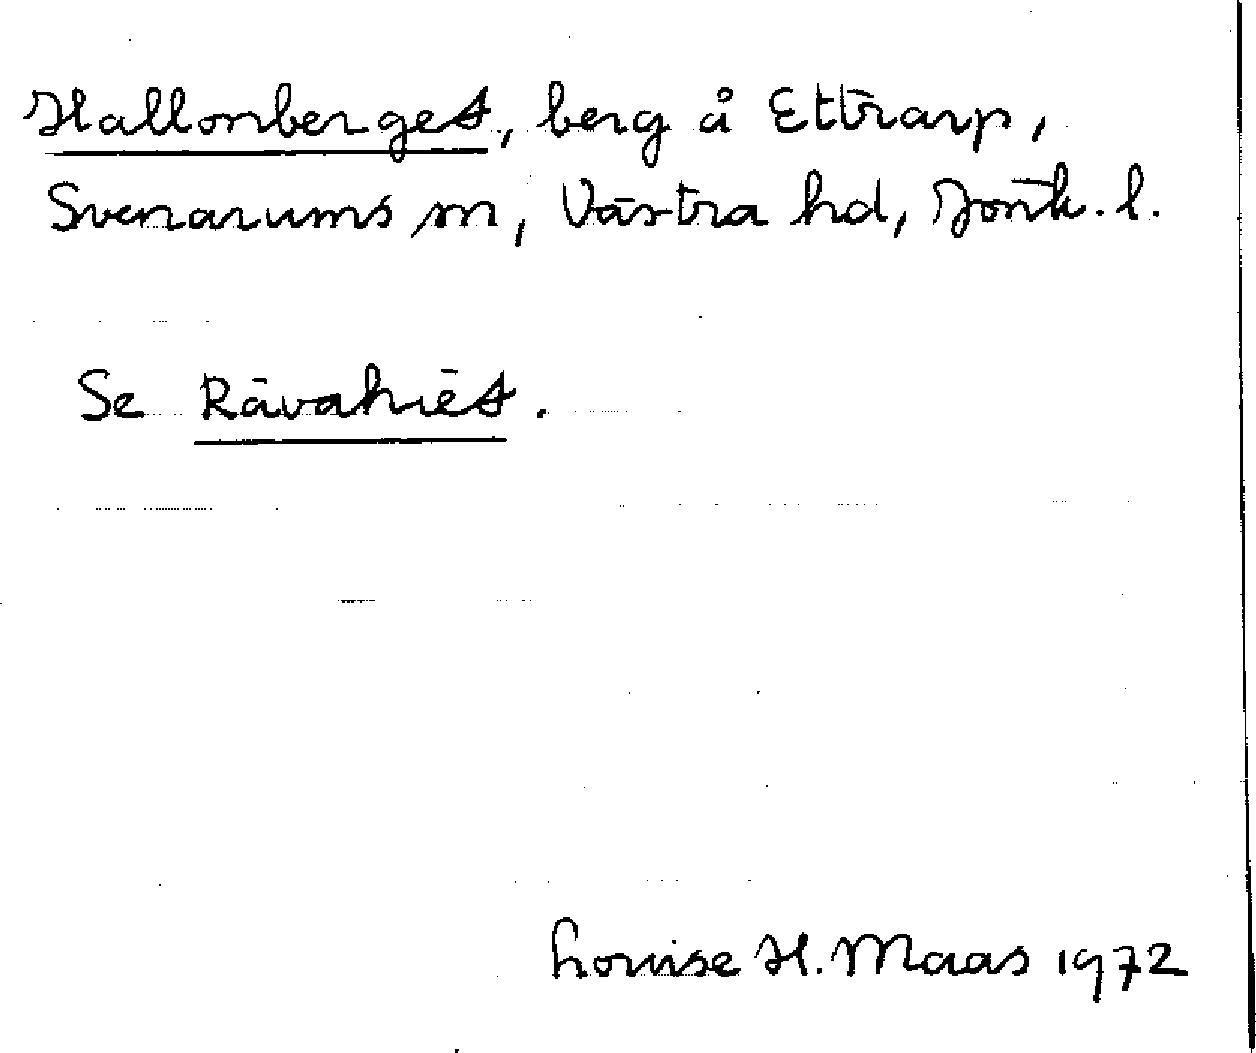 Hallonberget, berg å Ettrarp,
Svenarums sn, Västra hd, Jönk. l.
Se Rävahiet.
Louise H. Maas 1972